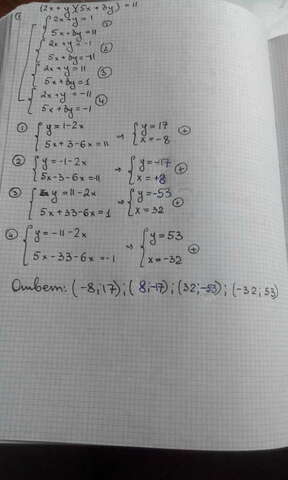 (2x+y)(5x+3y)=11
① { 2x+y=1
5x+3y=11 ①
{ 2x+y=-1
5x+3y=-11 ②
{ 2x+y=11
5x+3y=1 ③
{ 2x+y=-11
5x+3y=-1 ④
① { y=1-2x ⇒ { y=17
5x+3-6x=11 x=-8 ⊕
② { y=-1-2x ⇒ { y=-17
5x-3-6x=-11 x=+8 ⊕
③ { y=11-2x ⇒ { y=-53
5x+33-6x=1 x=32 ⊕
④ { y=-11-2x ⇒ { y=53
5x-33-6x=-1 x=-32 ⊕
Ответ: (-8;17); (8;-17); (32;-53); (-32;53)